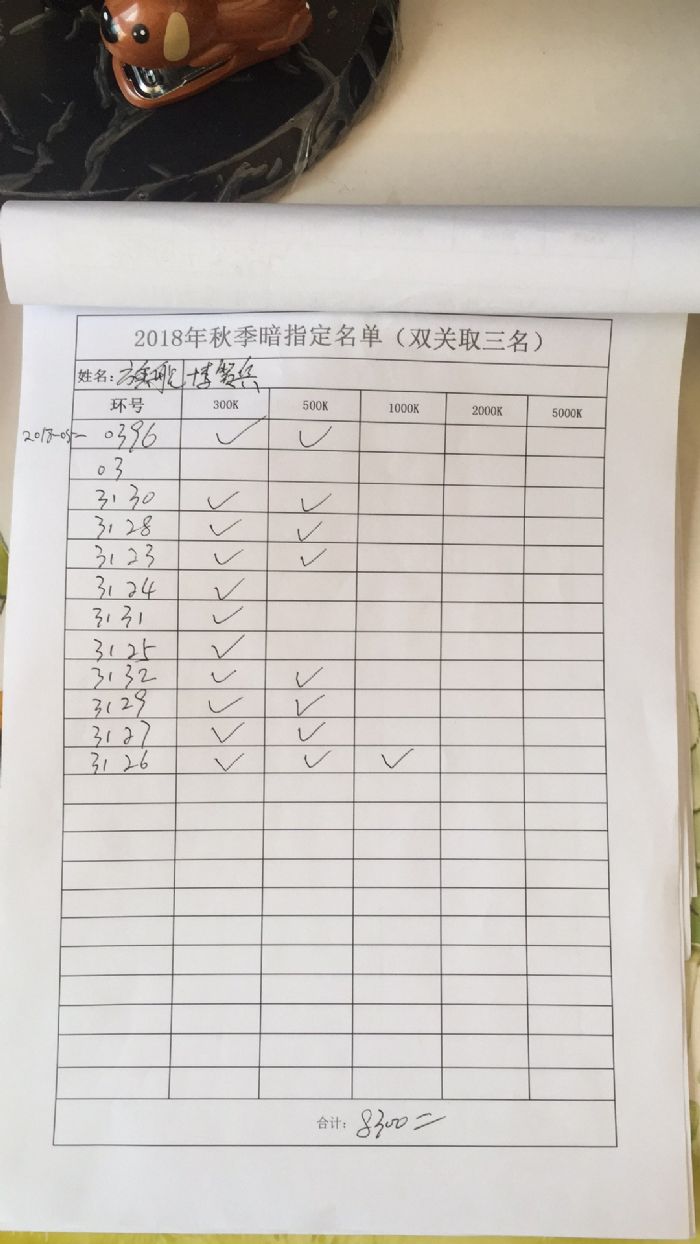 2018年秋季暗指定名单（双关取三名）
姓名：
环号 300K 500K 1000K 2000K 5000K
2018-05- 0396 ✓ ✓
03
3130 ✓ ✓
3128 ✓ ✓
3123 ✓ ✓
3124 ✓
3131 ✓
3125 ✓
3132 ✓ ✓
3129 ✓ ✓
3127 ✓ ✓
3126 ✓ ✓ ✓
合计：8300=